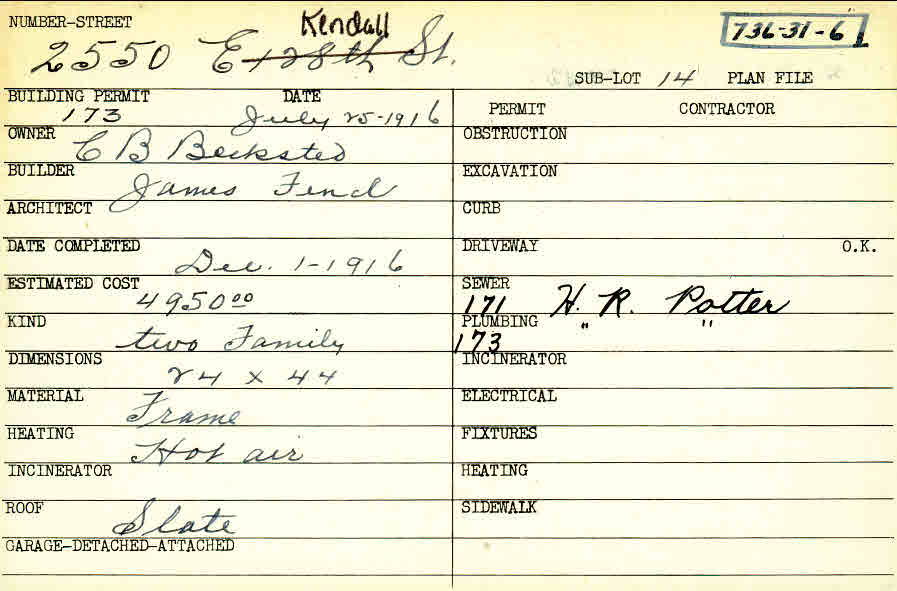 NUMBER-STREET Kendall 736-31-6
2550 E 128th St.
SUB-LOT 14 PLAN FILE
BUILDING PERMIT DATE PERMIT CONTRACTOR
173 July 25-1916
OWNER C B Becksted OBSTRUCTION
BUILDER James Fend EXCAVATION
ARCHITECT CURB
DATE COMPLETED Dec. 1-1916 DRIVEWAY O.K.
ESTIMATED COST 4950.00 SEWER 171 H. R. Potter
KIND two Family PLUMBING 173 " "
DIMENSIONS 24 x 44 INCINERATOR
MATERIAL Frame ELECTRICAL
HEATING Hot air FIXTURES
INCINERATOR HEATING
ROOF Slate SIDEWALK
GARAGE-DETACHED-ATTACHED